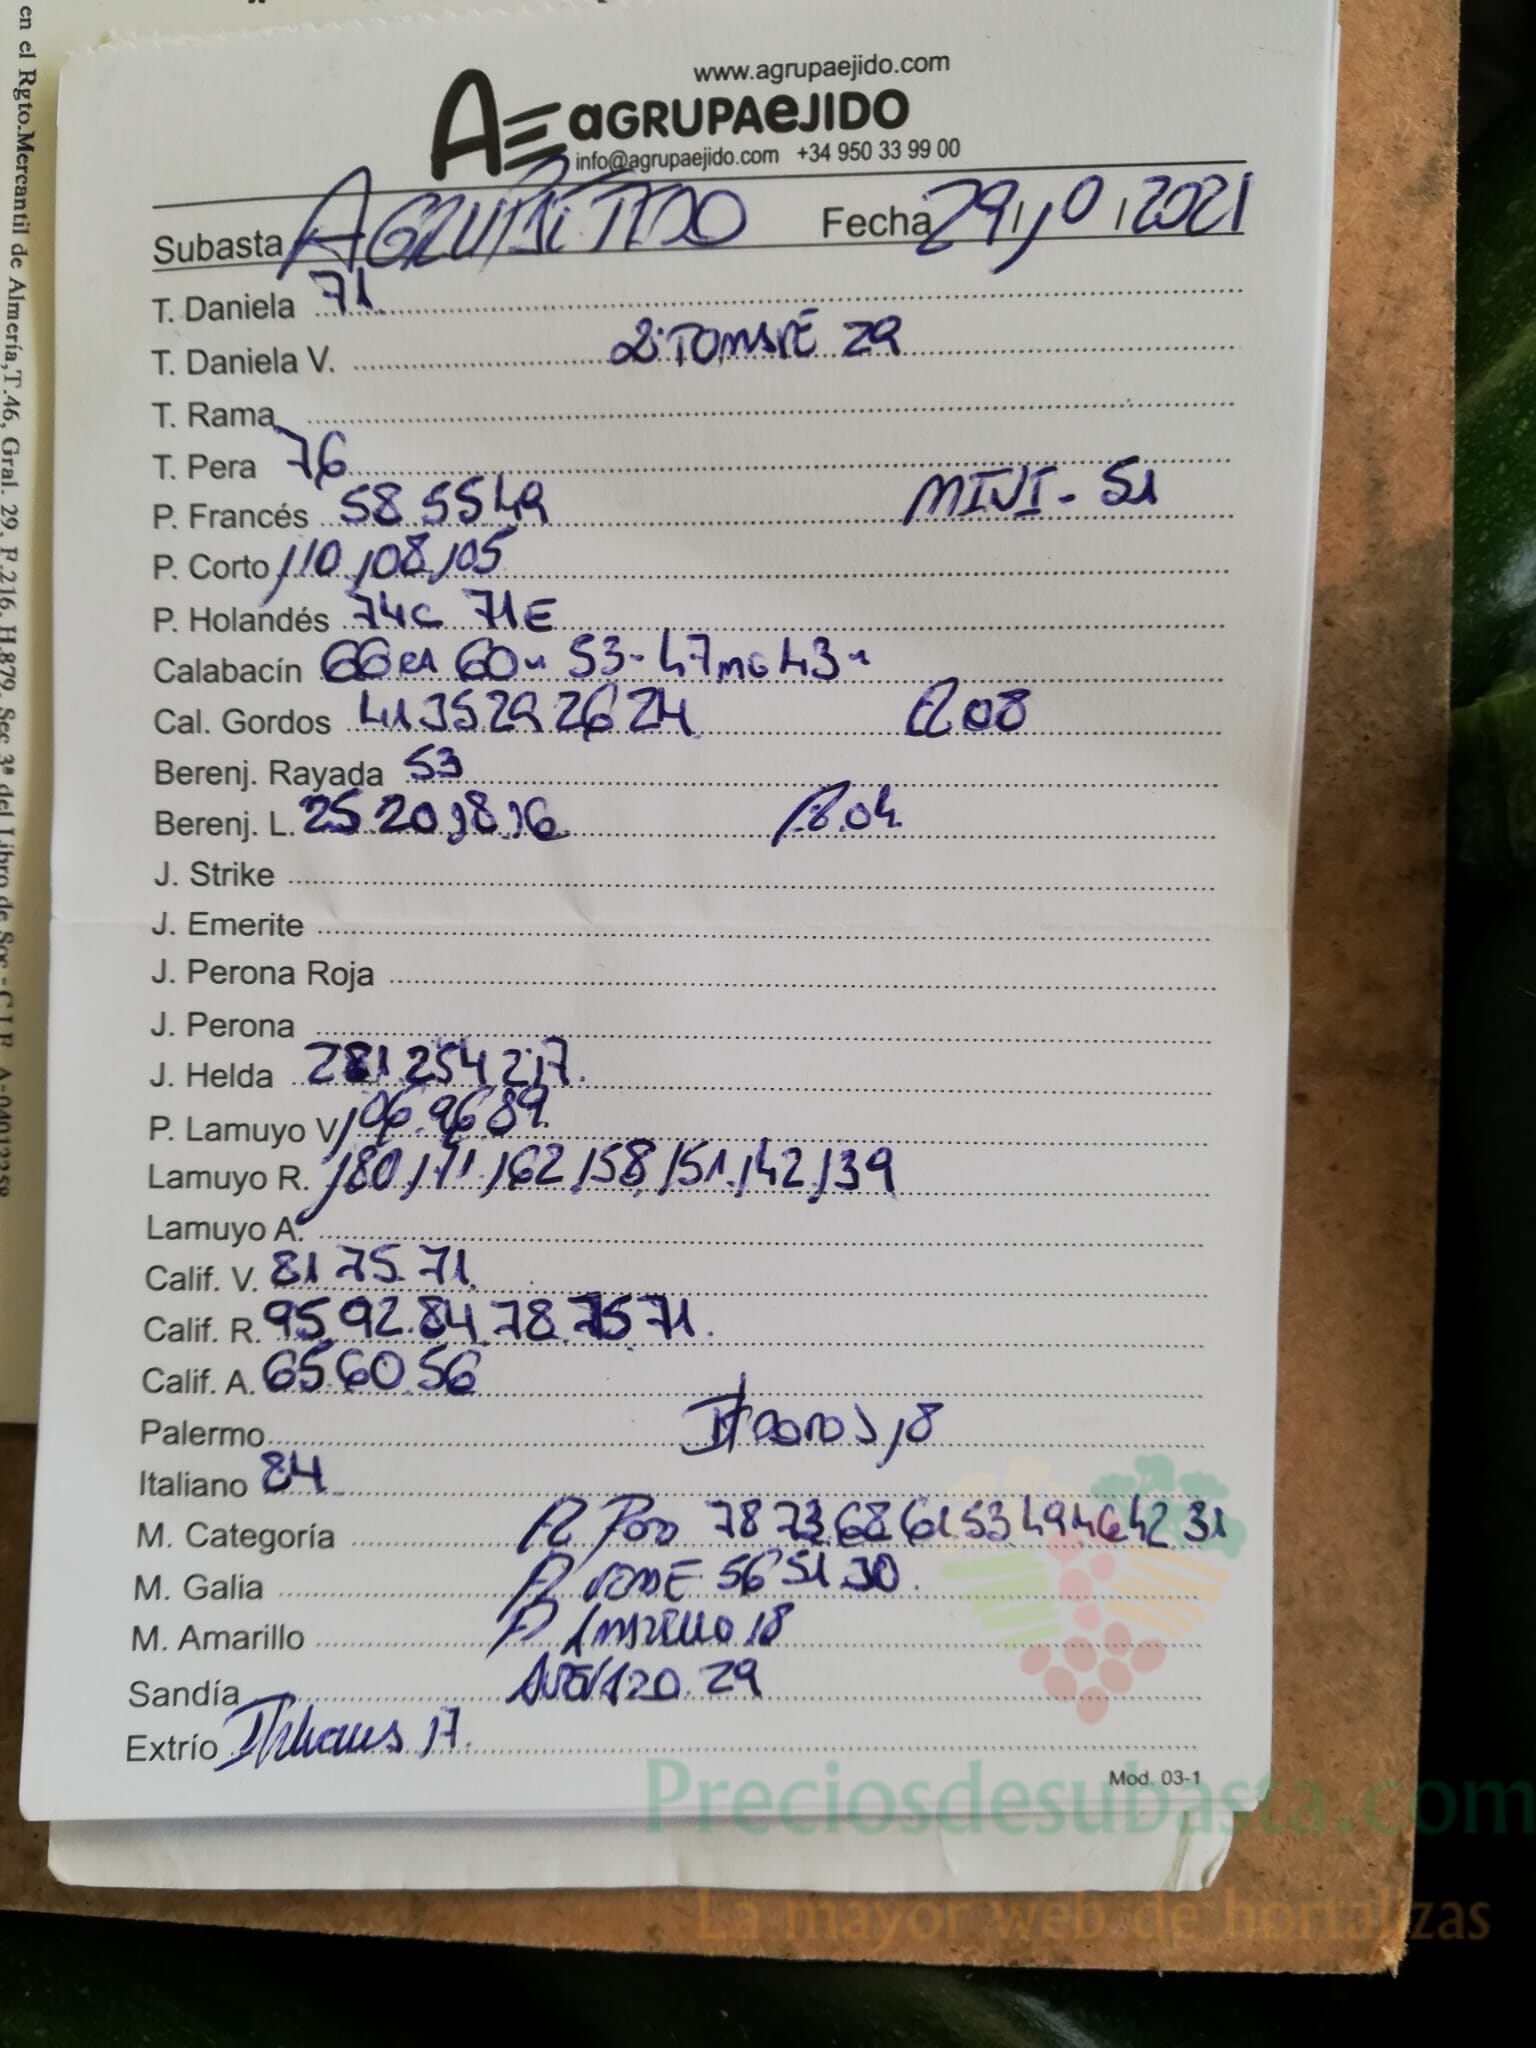 en el Rgto.Mercantil de Almería,T.46, Gral. 29, F.216, H.879, Sec 3ª del Libro de Soc.- C.I.F. A-04012359
www.agrupaejido.com
AE aGRUPAeJIDO
info@agrupaejido.com +34 950 33 99 00
Subasta AGRUPAEJIDO Fecha 29/10/2021
T. Daniela 71
T. Daniela V. 2ª TOMATE 29
T. Rama
T. Pera 76
P. Francés 58 55 49 MINI - 51
P. Corto 110 108 105
P. Holandés 74C 71E
Calabacín 66 60 53- 47 43
Cal. Gordos 41 35 29 26 24 R 08
Berenj. Rayada 53
Berenj. L. 25 20 18 16 R.04
J. Strike
J. Emerite
J. Perona Roja
J. Perona
J. Helda 281 254 217
P. Lamuyo V 106 96 89
Lamuyo R. 180 171 162 158 151 142 139
Lamuyo A.
Calif. V. 81 75 71
Calif. R. 95 92 84 78 75 71
Calif. A. 65 60 56
Palermo 18
Italiano 84
M. Categoría R 78 73 68 61 53 49 46 42 31
M. Galia R 56 51 30
M. Amarillo R Amarillo 18
Sandía 29
Extrío 17
Mod. 03-1
Preciosdesubasta.com
La mayor web de hortalizas